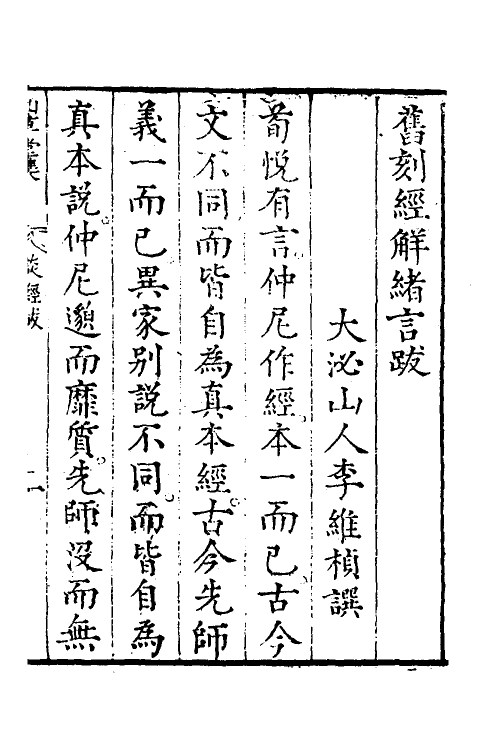 舊刻經解緒言跋
大泌山人李維楨譔
荀悅有言仲尼作經本一而已古今
文不同而皆自為真本經古今先師
義一而已異家別說不同而皆自為
真本說仲尼邈而靡質先師沒而無
談經跋